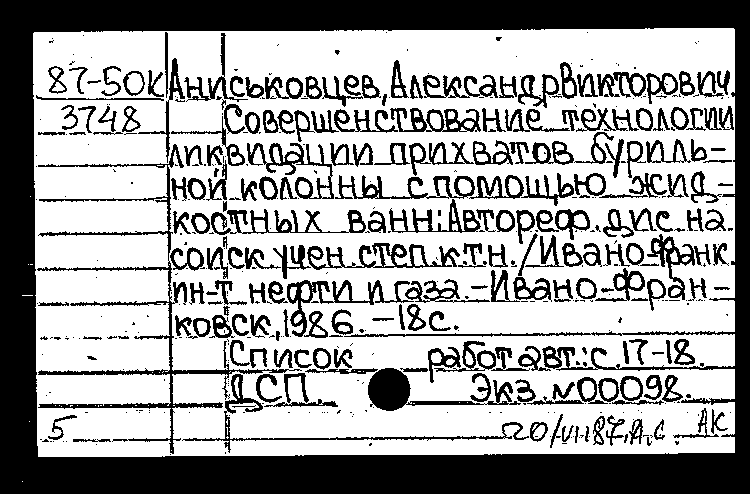 87-50К Аниськовцев, Александр Викторович.
3748 Совершенствование технологии
ликвидации прихватов буриль-
ной колонны с помощью жид-
костных ванн: Автореф. дис. на
соиск. учен. степ. к.т.н. / Ивано-Франк.
ин-т нефти и газа. - Ивано-Фран-
ковск, 1986. - 18 с.
Список работ авт.: с. 17-18.
ДСП. Экз. N 00098.
5 20/VI-87. А.С. АК